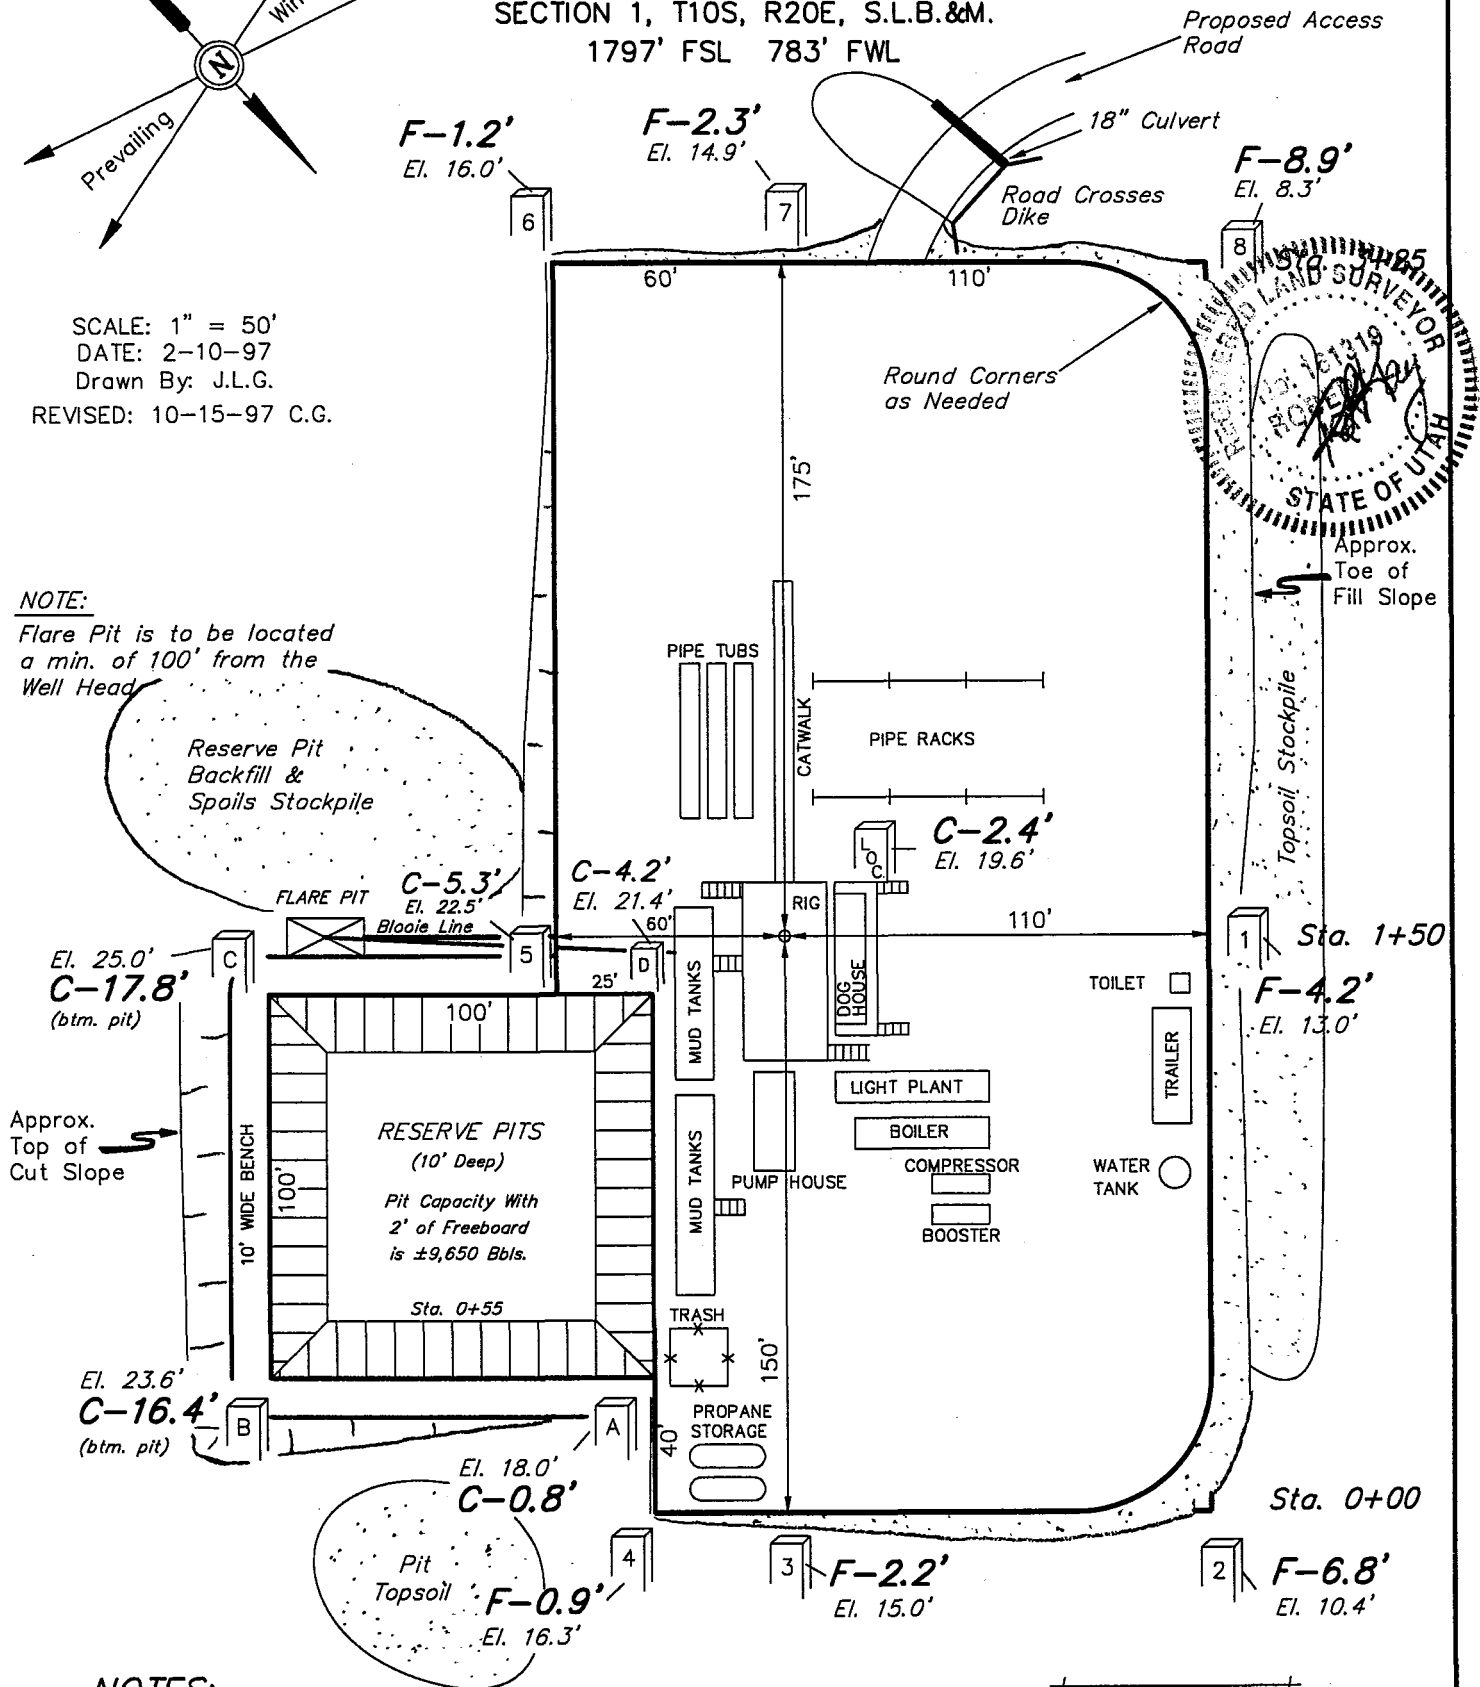 SECTION 1, T10S, R20E, S.L.B.&M.
1797' FSL 783' FWL
N
Prevailing
Proposed Access
Road
18" Culvert
Road Crosses
Dike
F-1.2'
El. 16.0'
6
F-2.3'
El. 14.9'
7
F-8.9'
El. 8.3'
8
Sta. 3+25
REGISTERED LAND SURVEYOR
No. 161319
STATE OF UTAH
60'
110'
SCALE: 1" = 50'
DATE: 2-10-97
Drawn By: J.L.G.
REVISED: 10-15-97 C.G.
Round Corners
as Needed
175'
Approx.
Toe of
Fill Slope
NOTE:
Flare Pit is to be located
a min. of 100' from the
Well Head
Reserve Pit
Backfill &
Spoils Stockpile
PIPE TUBS
CATWALK
PIPE RACKS
Topsoil Stockpile
L
O
C.
C-2.4'
El. 19.6'
FLARE PIT
C-5.3'
El. 22.5'
Blooie Line
5
C-4.2'
El. 21.4'
D
60'
RIG
110'
1
Sta. 1+50
F-4.2'
El. 13.0'
El. 25.0'
C-17.8'
(btm. pit)
C
100'
25'
MUD TANKS
DOG
HOUSE
TOILET
TRAILER
LIGHT PLANT
BOILER
COMPRESSOR
BOOSTER
PUMP HOUSE
WATER
TANK
Approx.
Top of
Cut Slope
10' WIDE BENCH
100'
RESERVE PITS
(10' Deep)
Pit Capacity With
2' of Freeboard
is ±9,650 Bbls.
Sta. 0+55
MUD TANKS
TRASH
150'
PROPANE
STORAGE
40'
El. 23.6'
C-16.4'
(btm. pit)
B
A
El. 18.0'
C-0.8'
Sta. 0+00
Pit
Topsoil
4
F-0.9'
El. 16.3'
3
F-2.2'
El. 15.0'
2
F-6.8'
El. 10.4'
NOTES: